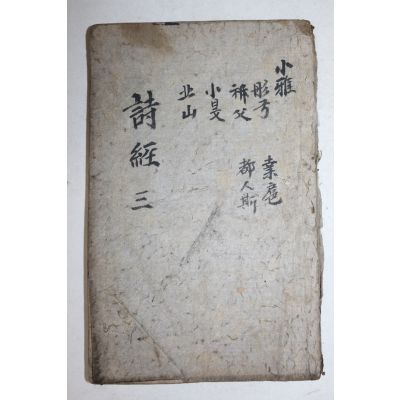 小雅
彤弓
祈父
小旻
北山
桑扈
都人斯
詩經 三